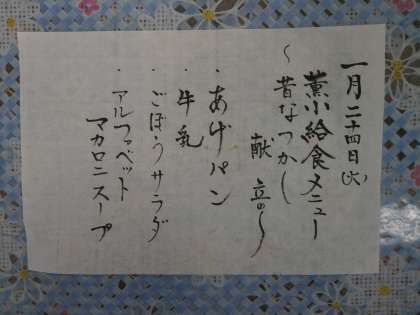 一月二十四日(火)
薫小給食メニュー
〜昔なつかし
献立の〜
・あげパン
・牛乳
・ごぼうサラダ
・アルファベット
マカロニスープ